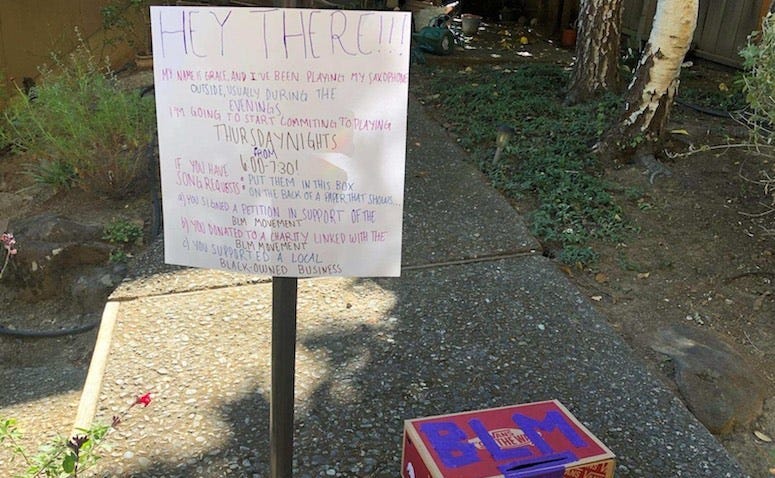 HEY THERE!!!
MY NAME IS GRACE, AND I'VE BEEN PLAYING MY SAXOPHONE
OUTSIDE, USUALLY DURING THE
EVENINGS
I'M GOING TO START COMMITING TO PLAYING
THURSDAY NIGHTS
FROM
6:00-7:30!
IF YOU HAVE SONG REQUESTS • PUT THEM IN THIS BOX
• ON THE BACK OF A PAPER THAT SHOWS...
a) YOU SIGNED A PETITION IN SUPPORT OF THE
BLM MOVEMENT
b) YOU DONATED TO A CHARITY LINKED WITH THE
BLM MOVEMENT
c) YOU SUPPORTED A LOCAL
BLACK-OWNED BUSINESS
BLM